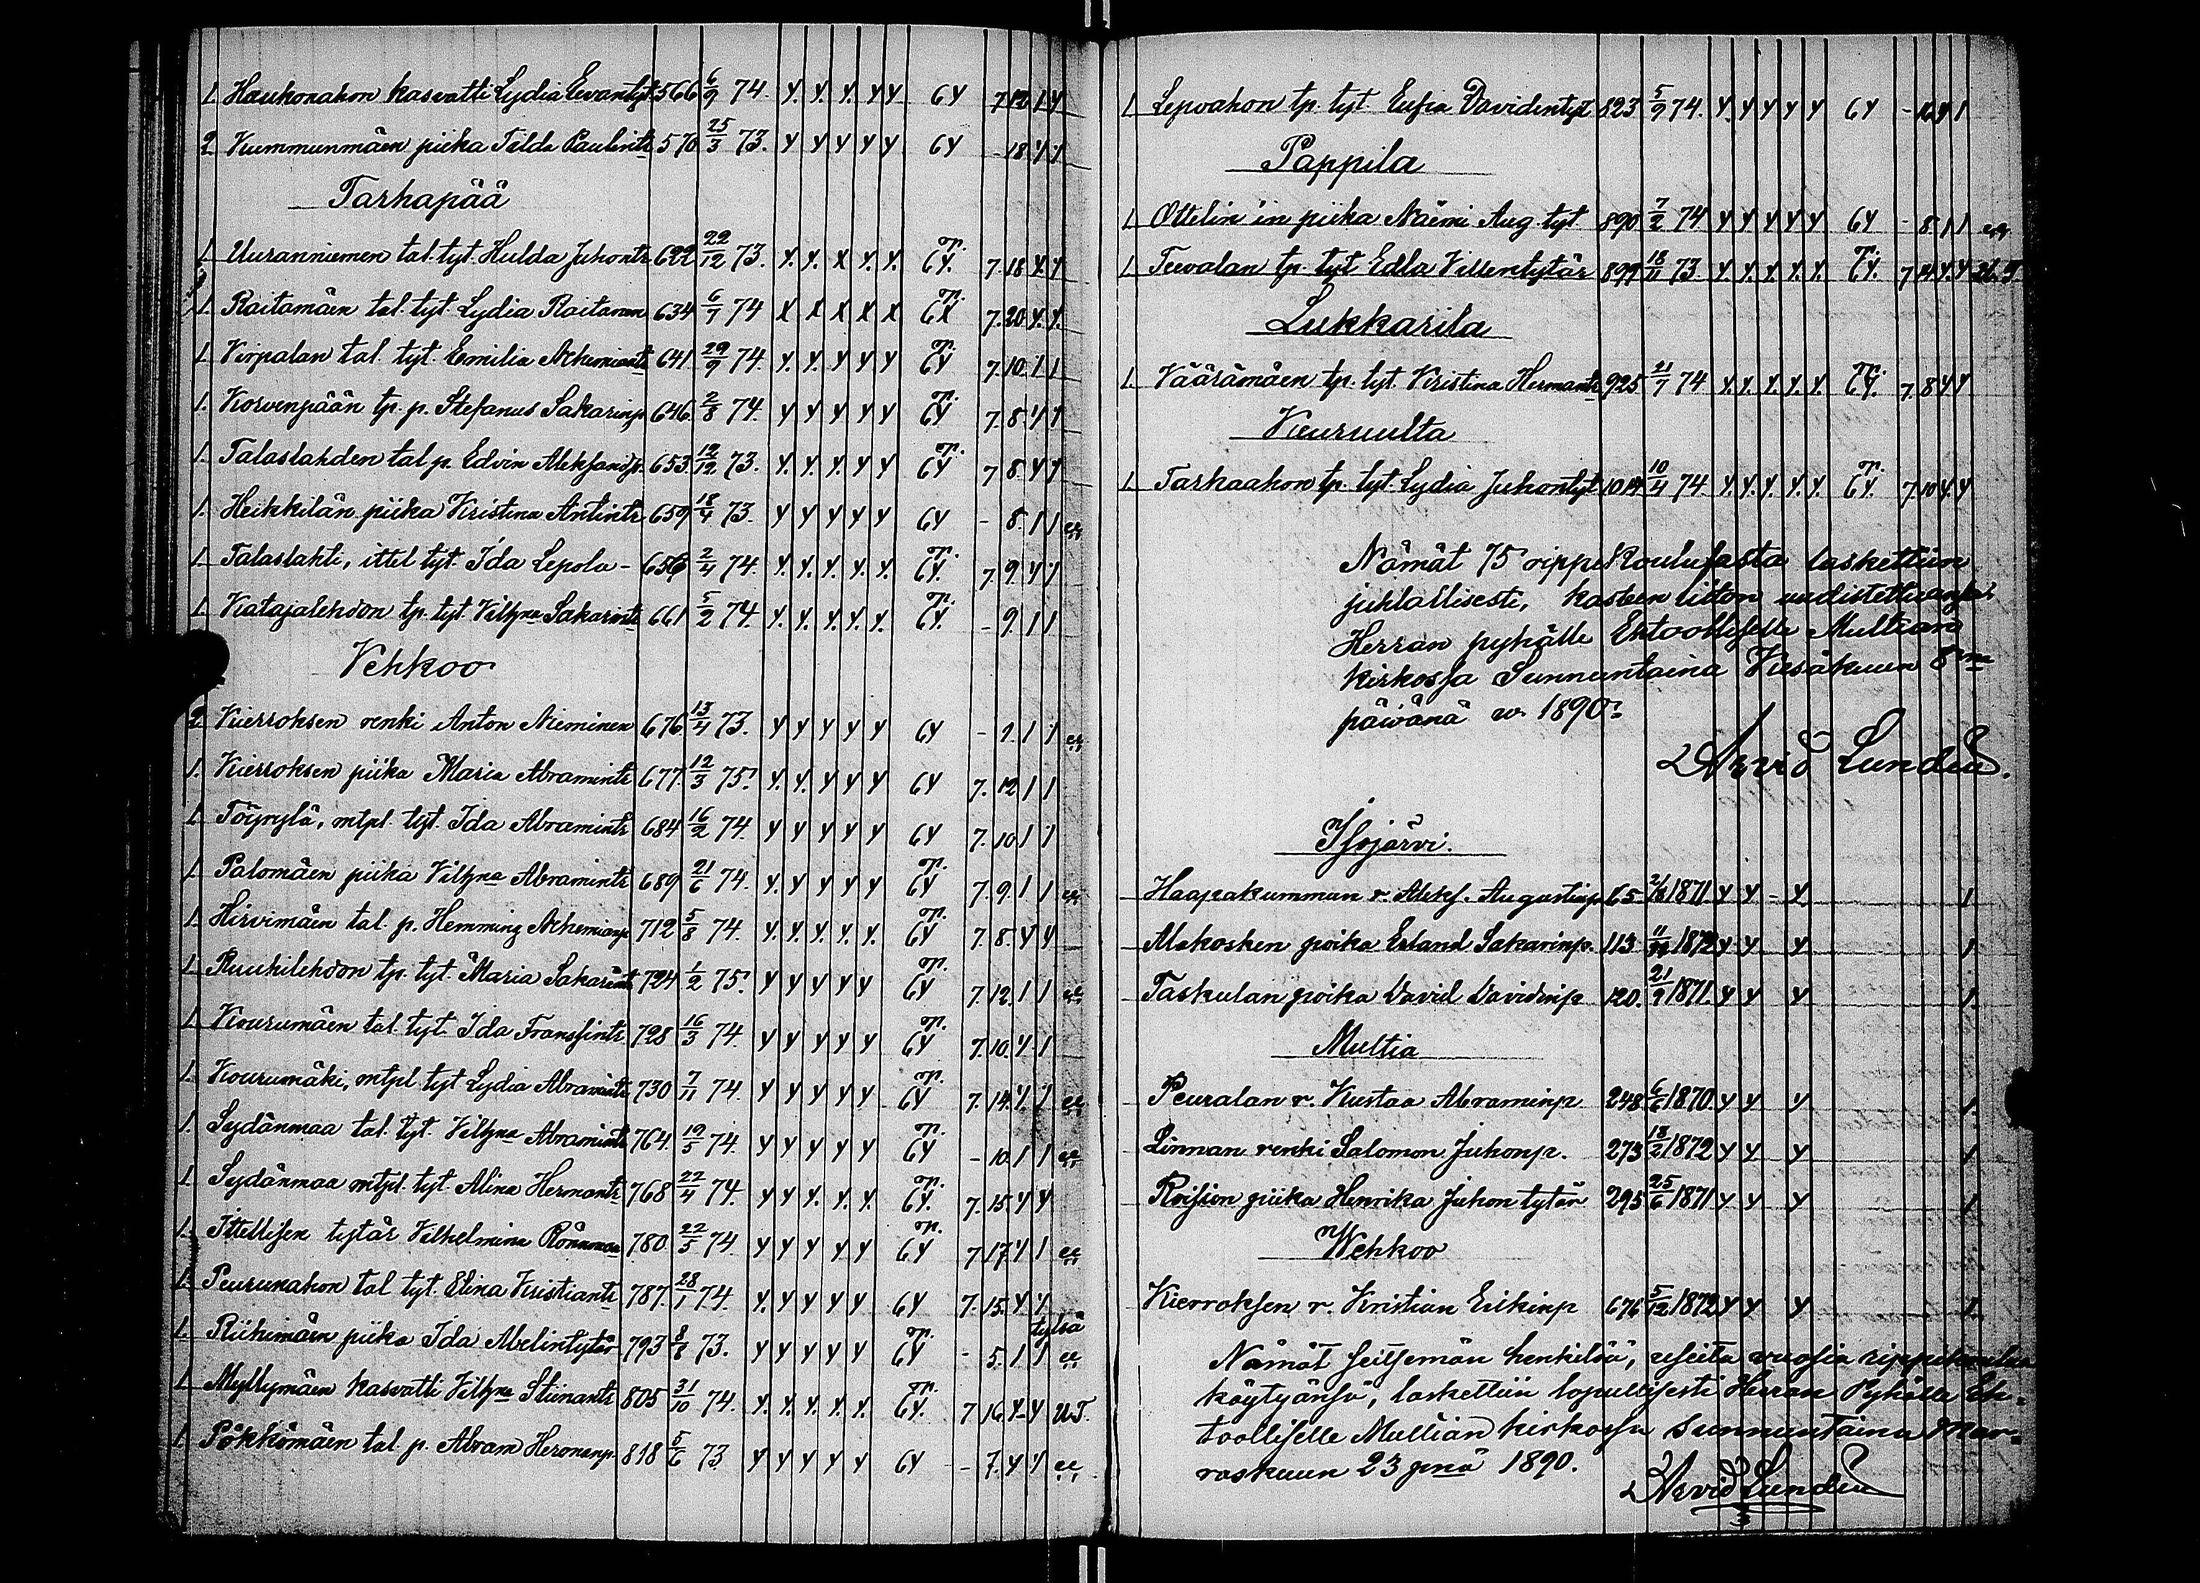 1. Haukonahon kasvatti Lydia Eevantyt. 566 6/9 74. y. y. y. y y 6y 7 12 1 y
2 Kummunmäen piika Tilda Paulintr 570 25/3 73. y y y y y 6y - 18 y 1
Tarhapää
1. Uuranniemen tal. tyt. Hulda Juhontr. 622 22/12 73. y. y. x y. y. 6y. 7. 18 y. y
1. Raitamäen tal. tyt. Lydia Raitanen 634 6/7 74 x x x x x 6x 7. 20 y. y.
1. Virpalan tal. tyt. Eemilia Nehemiantr 641. 29/9 74. y. y. y y y 6y 7. 10. 1 1
1. Korvenpään tp. p. Stefanus Sakarinp. 646. 2/8 74. y y y y y 6y 7. 8. y y
1. Talaslahden tal p. Edvin Aleksandp. 653. 12/12 73. y. y. y. y y 6y 7 8. y y
1. Heikkilän piika Kristina Antintr. 659 18/4 73. y y y y y 6y - 8. 1 1
1. Talaslahti, ittel tyt. Ida Lepola - 656 2/4 74. y. y. y. y. y. 6y. 7. 9. y 1
1. Katajalehdon tp. tyt. Vilhna Sakarintr 661 5/2 74. y. y. y. y. y. 6y. - 9. 1 1
Vehkoo
2 Kierroksen renki Anton Nieminen 676 13/4 73. y y y y y 6y - 9. 1 1
1. Kierroksen piika Maria Abramintr 677. 12/3 75. y. y. y y y 6y 7. 12 1 1
1. Töyrylä, mtpl. tyt. Ida Abramintr 684 16/2 74. y y y y y 6y 7. 10 1 1
1. Palomäen piika Vilhna Abramintr 689 21/6 74. y. y y y y 6y 7. 9. 1 1
1. Hirvimäen tal. p. Hemming Nehemianp 712 5/8 74. y. y. y. y. y. 6y 7. 8. y y
1. Ruuhilehdon tp. tyt. Maria Sakarintr 724 1/2 75. y y y y y 6y 7. 12. 1 1
1. Kourumäen tal. tyt. Ida Fransfintr 728 16/3 74. y y y y y 6y 7. 10. y 1
1. Kourumäki, mtpl. tyt Lydia Abramintr 730 7/11 74. y y y y y 6y 7. 14. y. 1
1. Sydänmaa tal. tyt. Vilhna Abramintr 764. 19/5 74. y y y y y 6y - 10. 1 1
1. Sydänmaa mtpl. tyt. Alina Hermantr 768 22/4 74. y y y. y. y. 6y. 7. 15. y y
1. Ittellisen tytär Vilhelmina Rönnman 780 22/5 74. y y y y y 6y 7 17. y 1
1. Peurunahon tal tyt. Elina Kristiantr 787. 28/1 74. y. y y y y 6y 7. 15. y y.
1. Riihimäen piika Ida Abelintytär 793 8/8 73. y y y y y 6y - 5. 1 1 tylsä
1. Myllymäen kasvatti Vilhna Stiinantr 805 31/10 74. y. y. y. y. y. 6y. 7 16. y y U.T.
1. Pökkömäen tal. p. Abram Hermanp. 818 5/6 73 y y y y y 6y - 7. y y
1. Lepoahon tp. tyt Eufia Davidintyt 823 5/9 74. y. y y y y 6y - 16 y 1
Pappila
1. Ottelin'in piika Naëmi Aug. tyt 890 7/2 74 y y y y y 6y - 8 1 1
1. Teevalan tp. tyt Edla Villentytär 899 18/11 73 y. y. y. y. y. 6y. 7 14 y. y
Lukkarila
1. Väärämäen tp. tyt. Kristina Hermantr 925 21/7 74 y. y. y. y. y. 6y. 7. 8 y y
Keuruulta
1. Tarhaahon tp. tyt. Lydia Juhontyt 1014 10/4 74. y. y. y. y. y. 6y. 7. 10 y. y
Nämät 75 rippikoululasta laskettiin
juhlallisesti, kasteen liiton uudistettuansa
Herran pyhälle Ehtoolliselle Multian
kirkossa Sunnuntaina Kesäkuun 8na
päivänä w. 1890:
Arvid Lundén.
Isojärvi.
Haapakummun r. Aleks. Augustinp 65 1871 y y - y 1
Alakosken poika Erland Sakarinp. 113 1872 y y y 1
Taskulan poika David Davidinp 120. 21/9 1871 y y y 1.
Multia
Peuralan r. Kustaa Abraminp 248 6/6 1870 y y y 1.
Linnan renki Salomon Juhonp. 273 18/2 1872 y y y 1
Roision piika Henrika Juhon tytär 295 25/6 1871 y y y 1
Wehkoo
Kierroksen r. Kristian Erkinp 676 5/12 1872 y y y 1.
Nämät seitsemän henkilöä, useita vuosia rippikoulua
käytyänsä, laskettiin lopullisesti Herran Pyhälle Eh-
toolliselle Multian kirkossa sunnuntaina Mar-
raskuun 23 pnä 1890.
Arvid Lundén